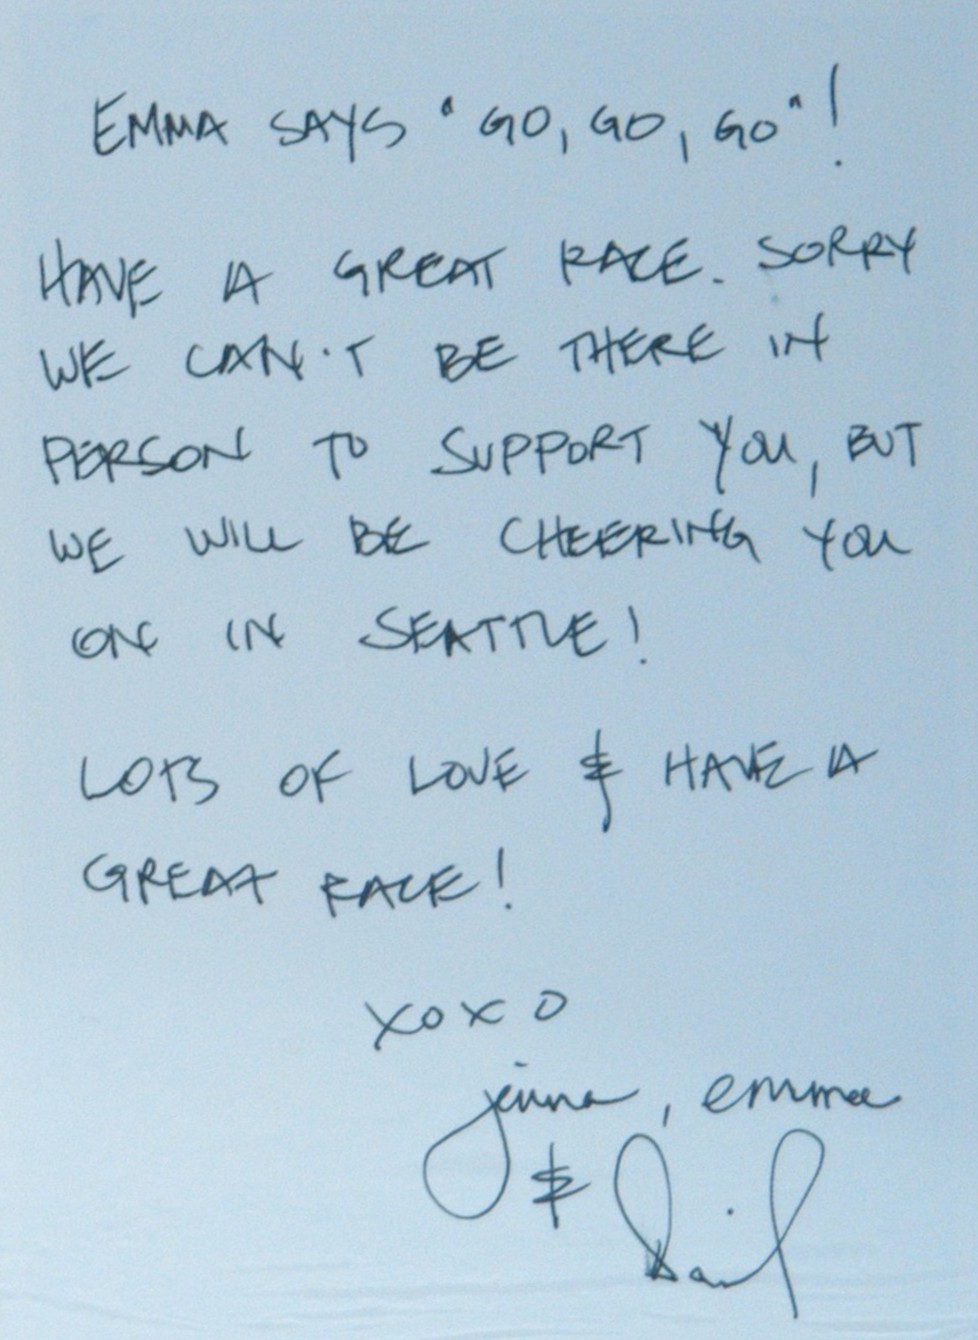 EMMA SAYS "GO, GO, GO"!
HAVE A GREAT RACE. SORRY
WE CAN'T BE THERE IN
PERSON TO SUPPORT YOU, BUT
WE WILL BE CHEERING YOU
ON IN SEATTLE!
LOTS OF LOVE & HAVE A
GREAT RACE!
XOXO
jenna, emma
&